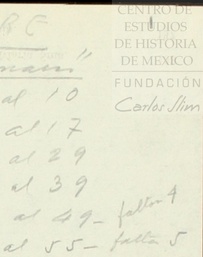 CENTRO DE
ESTUDIOS
DE HISTORIA
DE MEXICO
FUNDACIÓN
Carlos Slim
al 10
al 17
al 29
al 39
al 49 - falta 4
al 55 - falta 5